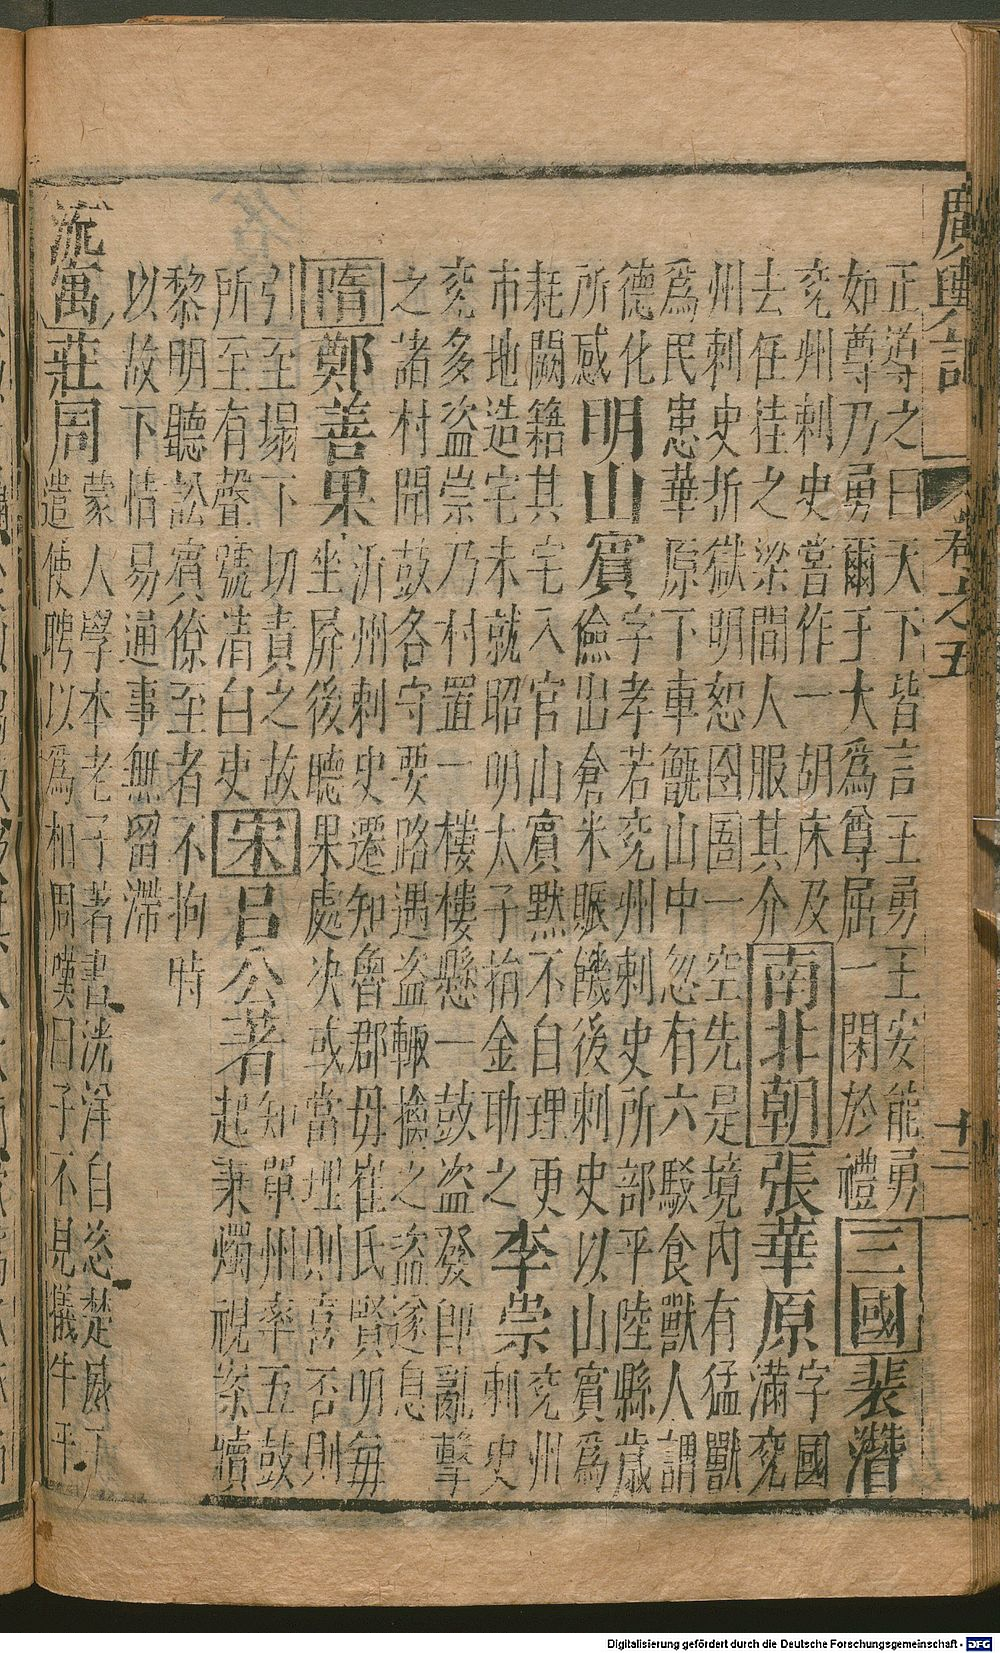 廣輿記
卷之五
十二
正導之曰天下皆言王勇王安能勇
如尊乃勇爾王大爲尊屈一閑於禮
三國
裴潛
兗州刺史嘗作一胡床及
去任挂之梁間人服其介
南北朝
張華原
字國
滿兗
州刺史折獄明恕囹圄一空先是境內有猛獸
爲民患華原下車甑山中忽有六駁食獸人謂
德化
所感
明山賓
字孝若兗州刺史所部平陸縣歲
儉出倉米賑饑後刺史以山賓爲
耗闕籍其宅入官山賓默不自理更
市地造宅未就昭明太子捐金助之
李崇
兗州
刺史
兗多盜崇乃村置一樓樓懸一鼓盜發卽亂擊
之諸村聞鼓各守要路遇盜輙擒之盜遂息
隋
鄭善果
沂州刺史遷知魯郡毋崔氏賢明每
坐屏後聽果處決或當理則喜否則
引至塌下切責之故
所至有聲號清白吏
宋
呂公著
知單州率五鼓
起秉燭視案牘
黎明聽訟賓僚至者不拘時
以故下情易通事無留滯
流寓
莊周
蒙人學本老子著書洸洋自恣楚威王
遣使聘以爲相周嘆曰子不見犧牛乎
Digitalisierung gefördert durch die Deutsche Forschungsgemeinschaft - DFG